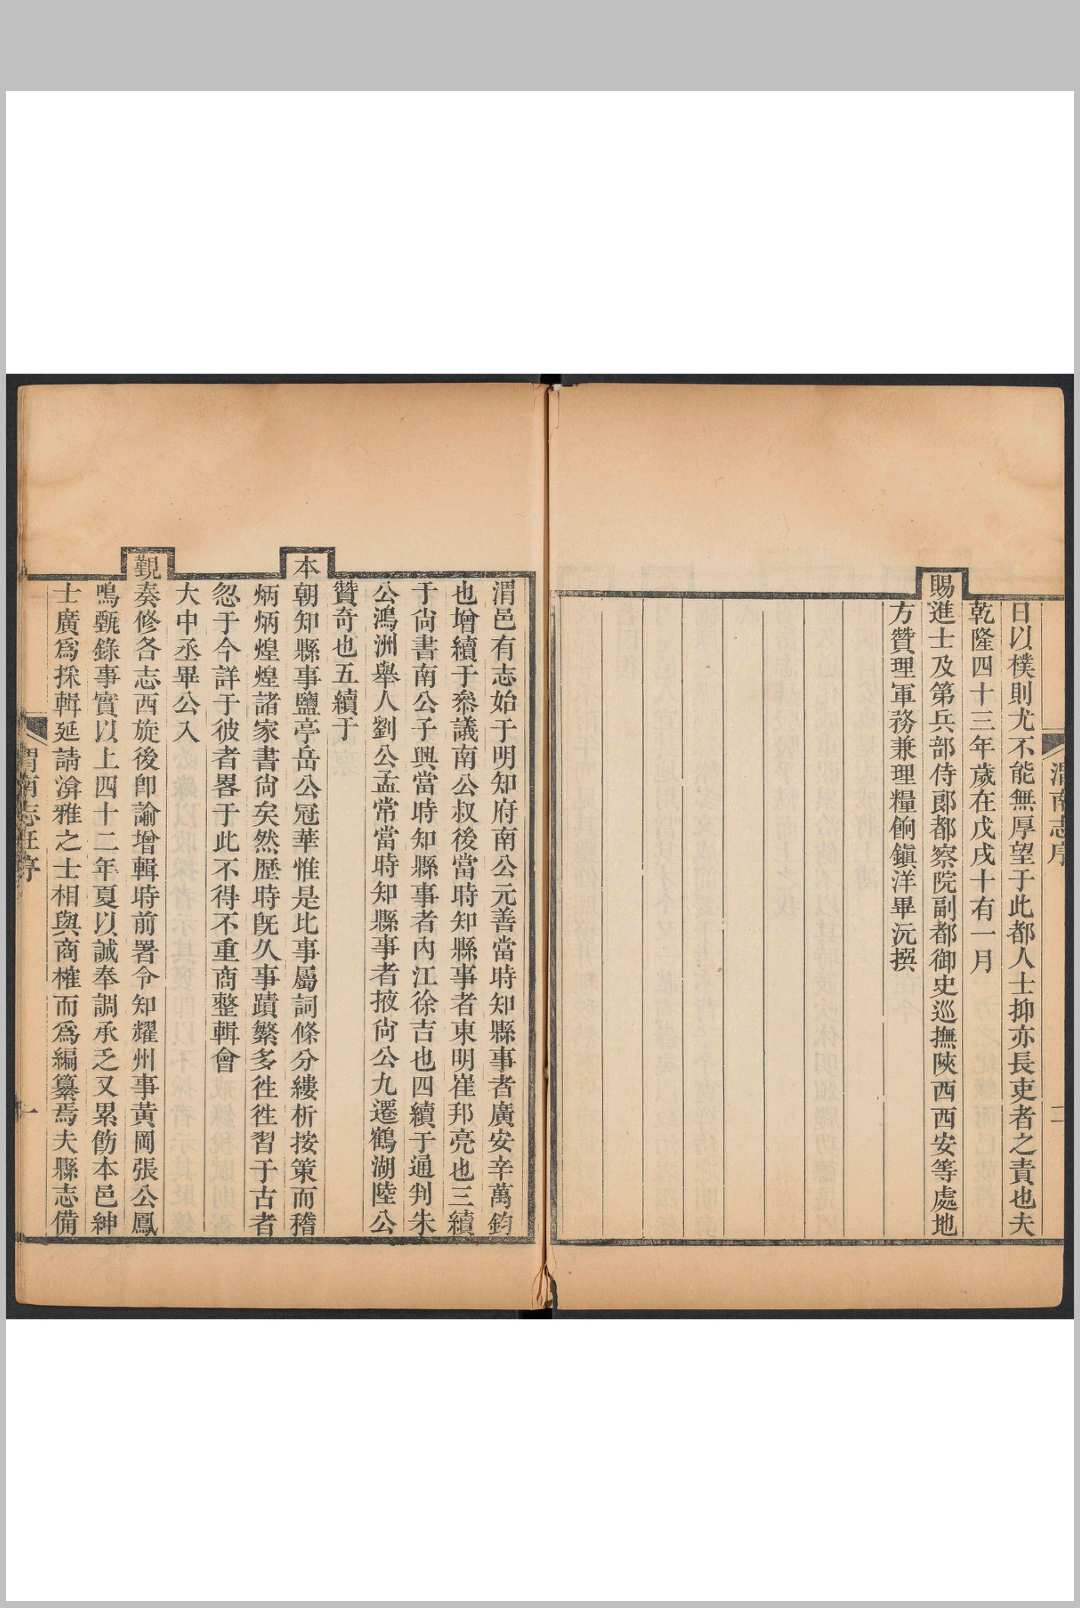 渭南志序
二
日以樸則尤不能無厚望于此都人士抑亦長吏者之責也夫
乾隆四十三年歲在戊戌十有一月
賜進士及第兵部侍郎都察院副都御史巡撫陝西西安等處地
方贊理軍務兼理糧餉鎮洋畢沅撰
渭邑有志始于明知府南公元善當時知縣事者廣安辛萬鈞
也增續于叅議南公叔後當時知縣事者東明崔邦亮也三續
于尚書南公子興當時知縣事者內江徐吉也四續于通判朱
公鴻洲舉人劉公孟常當時知縣事者掖尚公九遷鶴湖陸公
贊奇也五續于
本朝知縣事鹽亭岳公冠華惟是比事屬詞條分縷析按策而稽
炳炳煌煌諸家書尚矣然歷時旣久事蹟繁多徃徃習于古者
忽于今詳于彼者畧于此不得不重商整輯會
大中丞畢公入
覲奏修各志西旋後卽諭增輯時前署令知耀州事黃岡張公鳳
鳴甄錄事實以上四十二年夏以誠奉調承乏又累飭本邑紳
士廣為採輯延請淹雅之士相與商榷而為編纂焉夫縣志備
渭南志汪序
一